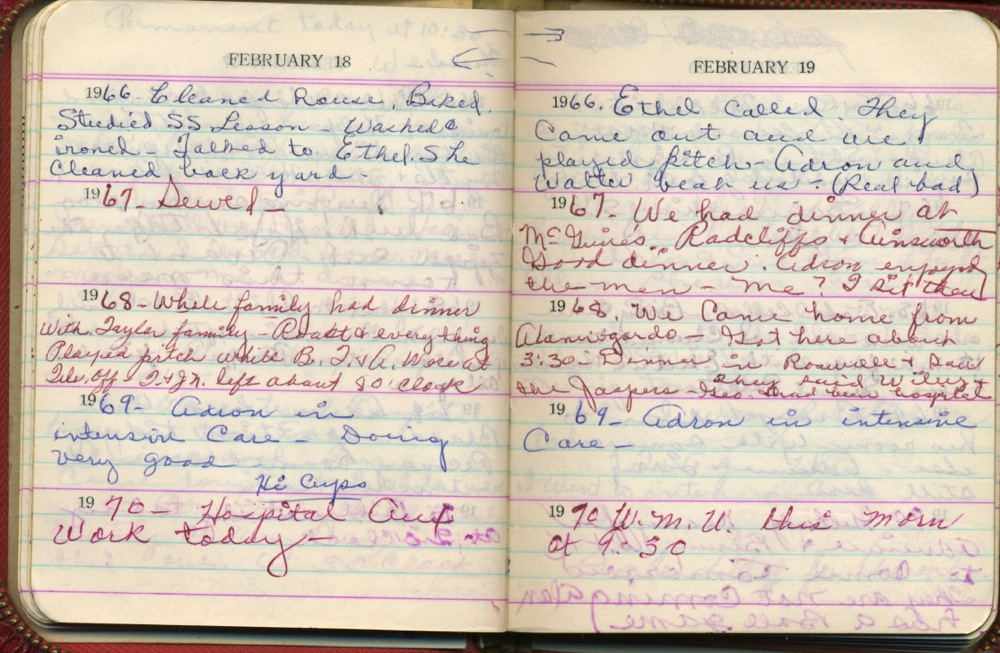 Permanent today at 10:30
FEBRUARY 18
1966. Cleaned House, Baked.
Studied SS Lesson Washed &
ironed. Talked to Ethel. She
Cleaned back yard -
1967 - Sewed -
1968 - Whole family had dinner
with Taylor family - Roast & everything
Played pitch while B. T. & A. Were at
T. & Jr. left about 8 O'clock
1969 - Adron in
intensive Care - Doing
very good
Hi Cups
1970 - Hospital Aux
Work today -
FEBRUARY 19
1966. Ethel called. They
Came out and we
played pitch - Adron and
Walter beat us - (Real bad)
1967. We had dinner at
McGuires. Radcliffs & Ainsworth
Good dinner. Adron enjoyed
the men - Me? I sit there
1968. We Came home from
Alamogordo - Got here about
3:30 - Dinner in Roswell & Saw
the Jaspers - Geo. had been hospital
They said
1969 - Adron in intensive
Care -
1970 W.M.U. this Morn
at 9:30